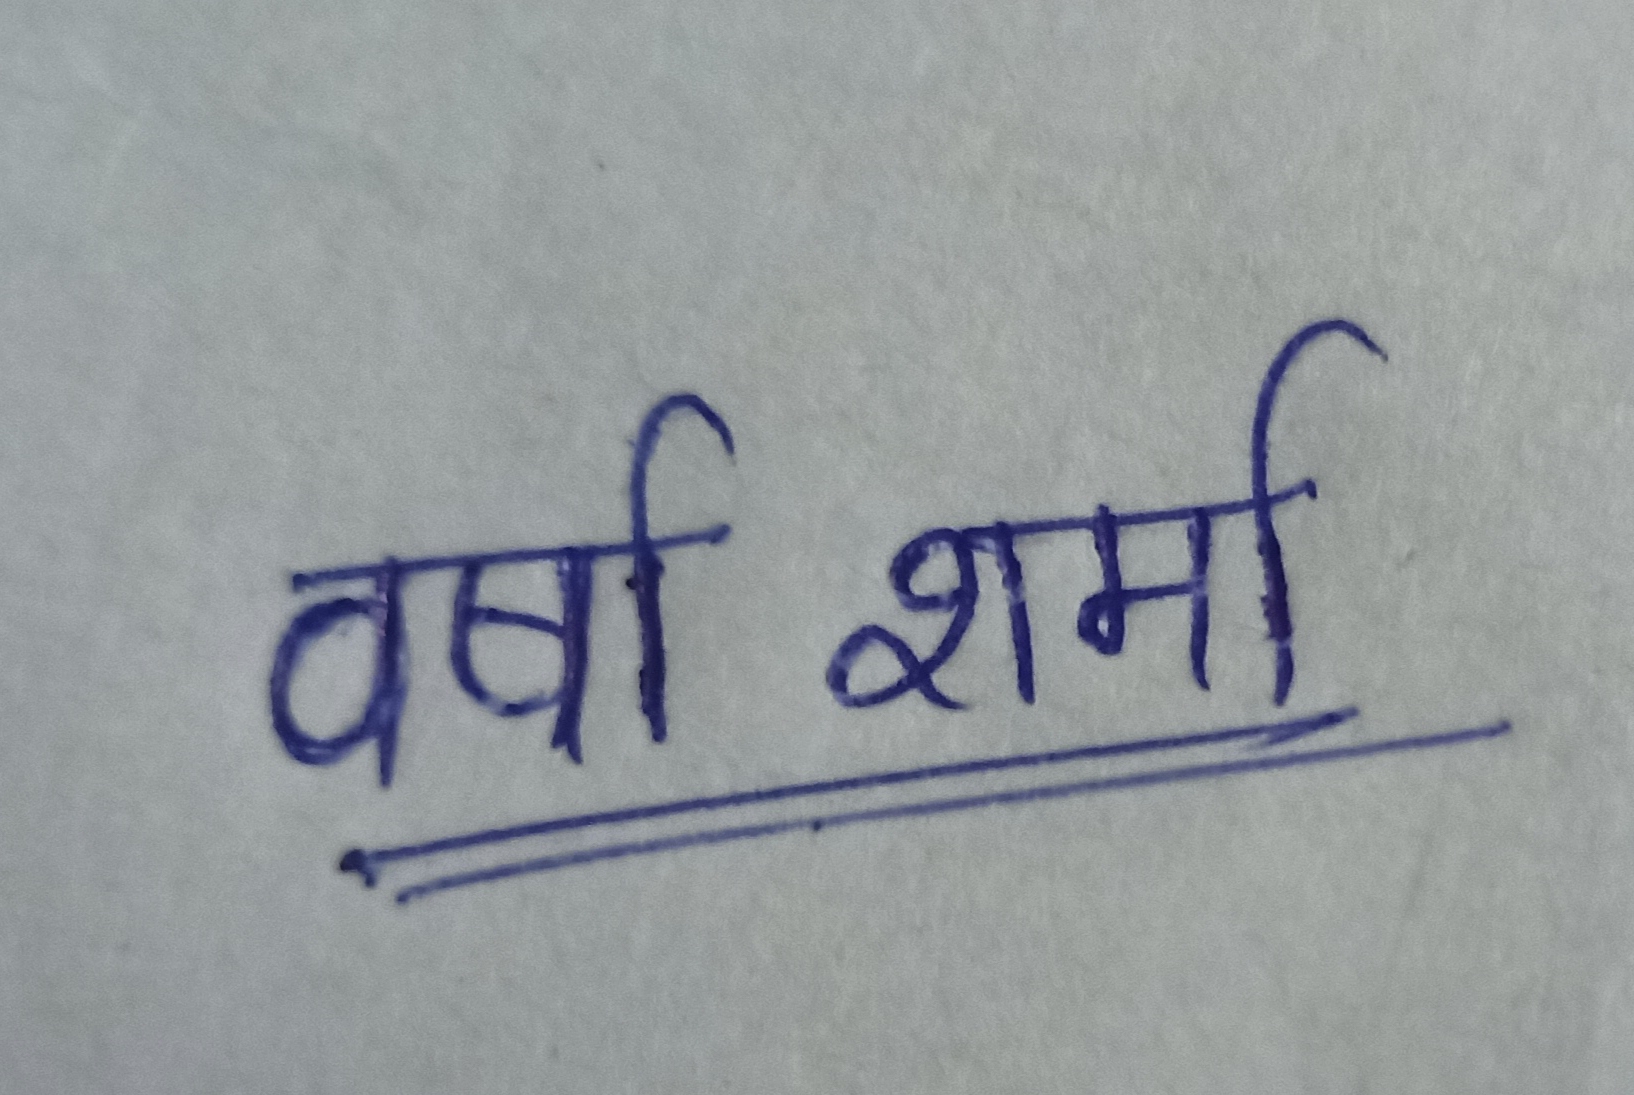 वर्षा शर्मा